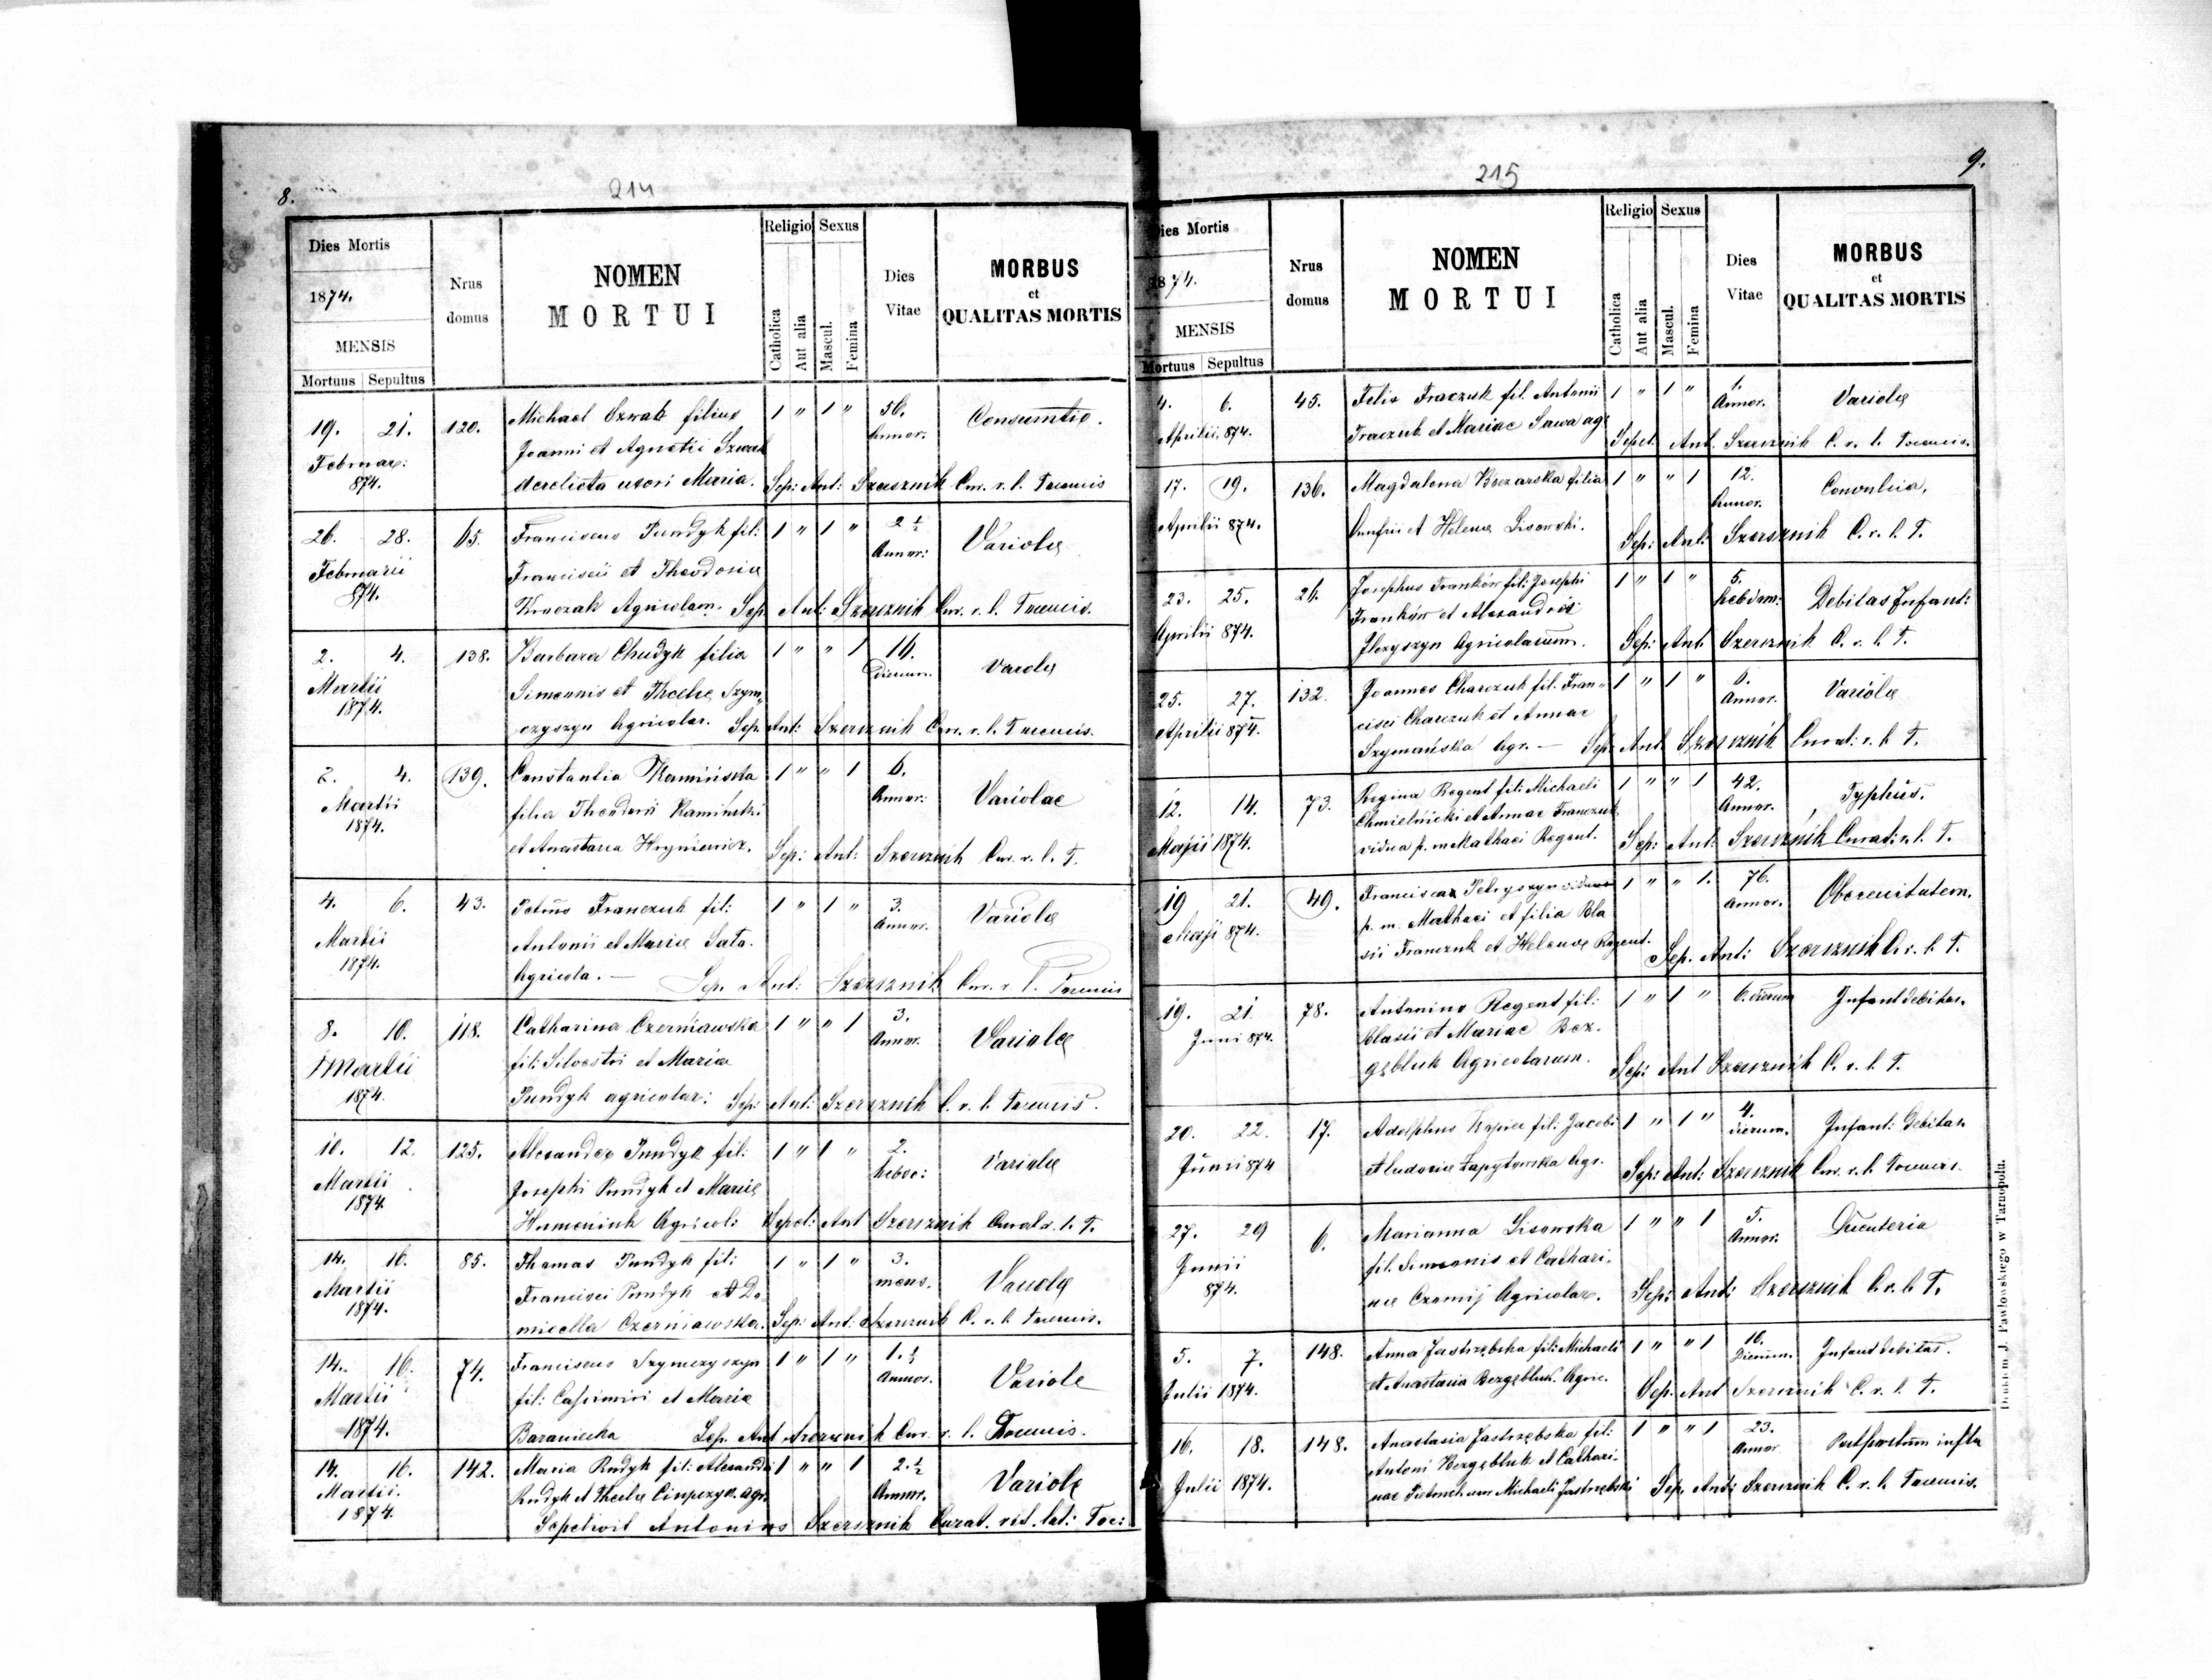 8.
214
Dies Mortis
1874.
MENSIS
Mortuus Sepultus
Nrus domus
NOMEN
MORTUI
Religio
Catholica
Aut alia
Sexus
Mascul.
Femina
Dies Vitae
MORBUS
et
QUALITAS MORTIS
19. 21. 120. Michael Szwab filius 1 " 1 " 56. Consumtio.
Februar: Joanni et Agnetis Szwab Annor.
874. derelicta uxori Maria. Sep: Ant: Szersznik Cur. r. l.
26. 28. 65. Franciscus Pundyk fil: 1 " 1 " 2 ½ Variola
Februarii Francisci et Theodosia Annor:
874. Agricolam. Sep. Ant: Szersznik Cur. r. l.
2. 4. 138. Barbara Chudyk filia 1 " " 1 Variola
Martii Simeonis et Theclae Szym„ Dierum.
1874. czyszyn Agricolar. Sep. Ant: Szersznik Cur. r. l.
2. 4. 139. Constantia Kamińska 1 " " 1 6. Variolae
Martii filia Theodorii Kamiński Annor:
1874. et Anastasia Hryniewicz. Sep: Ant: Szersznik Cur. r. l. T.
4. 6. 43. Petrus Franczuk fil: 1 " 1 " 3. Variola
Martii Antonii et Mariae Annor.
1874. Agricola. — Sep. Ant: Szersznik Cur. r. l.
8. 10. 118. Catharina Czerniawska 1 " " 1 3. Variola
Martii fil: Silvestri et Maria Annor.
1874. Pundyk agricolar: Sep: Ant: Szersznik C. r. l.
10. 12. 125. Alexander Pundyk fil: 1 " 1 " 2. Variola
Martii Josephi Pundyk et Maria
1874. Humeniuk Agricol: Sepel: Ant Szersznik Curat. r. l. T.
14. 16. 85. Thomas Pundyk fil: 1 " 1 " 3. Variola
Martii Francisci Pundyk et Do mens.
1874. micella Czerniawska. Sep: Ant. Szersznik C. r. l.
14. 16. 74. Franciscus Szymczyszyn 1 " 1 " 1. ½ Variola
Martii fil: Casimiri et Maria Annor.
1874. Baraniecka Sep. Ant Szersznik Cur. r. l.
14. 16. 142. Maria Rudyk fil: Alexandri 1 " " 1 2. ½ Variola
Martii. Rudyk et Thecla agr. Annor.
1874. Sepelivit Antonius Szersznik Curat. rit. lat:
9.
215
Dies Mortis
1874.
MENSIS
Mortuus Sepultus
Nrus domus
NOMEN
MORTUI
Religio
Catholica
Aut alia
Sexus
Mascul.
Femina
Dies Vitae
MORBUS
et
QUALITAS MORTIS
4. 6. 45. Felix Fraczuk fil. Antonii 1 " 1 " 1. Variola
Aprilii 874. Fraczuk et Mariae Sawa agr. Annor.
Sepel. Ant. Szersznik C. r. l.
17. 19. 136. Magdalena filia 1 " " 1 12. Convulsia.
Aprilii 874. Onufrii et Helena Lisowski. Annor.
Sep: Ant: Szersznik C. r. l. T.
23. 25. 21. Josephus Franków fil: Josephi 1 " 1 " 5. Debilas Infant:
Aprilii 874. Franków et Alexandria hebdom:
Agricolarum. Sep: Ant Szersznik C. r. l. T.
25. 27. 132. Joannes Charczuk fil. Fran„ 1 " 1 " 6. Variola
Aprilii 874. cisci Charczuk et Annae Annor.
Szymańska Agr. — Sep: Ant Szersznik Curat: r. l. T.
12. 14. 73. Regina Regent fil: Michaeli 1 " " 1 42. Typhus.
Maji 1874. Chmielnicki et Annae Franczuk Annor.
vidua p. m Mathaei Regent. Sep: Ant: Szersznik Curat: r. l. T.
19 21. 49. Francisca Petryszyn vidua 1 " " 1. 76.
Maji 874. p. m. Mathaei et filia Bla Annor.
sii Franczuk et Helenae Regent. Sep. Ant: Szersznik C. r. l. T.
19. 21. 78. Antonius Regent fil: 1 " 1 " 6. dierum Infant debitas.
Juni 874. Blasii et Mariae Bez.
gębluk Agricolarum. Sep: Ant Szersznik C. r. l. T.
20. 22. 17. Adolphus fil: Jacobi 1 " 1 " 4. Infant: debitas
Junii 874 Agr. dierum.
Sep: Ant: Szersznik Cur. r. l.
27. 29 6. Marianna Lisowska 1 " " 1 5.
Junii fil. Simeonis et Cathari. Annor.
874. nae Agricolar. Sep: Ant: Szersznik C. r. l. T.
5. 7. 148. Anna Jastrzębska fil: Michaeli 1 " " 1 10. Infant debitas.
Julii 1874. et Anastasia Bezgębluk. Agric. Dierum.
Sep. Ant Szersznik C. r. l. T.
16. 18. 148. Anastasia Jastrzębska fil: 1 " " 1 23.
Julii 1874. Antoni Bezgębluk et Cathari. Annor
nae uxor Michaeli Jastrzębski Sep. Ant: Szersznik C. r. l.
Drukiem J. Pawłowskiego w Tarnopolu.